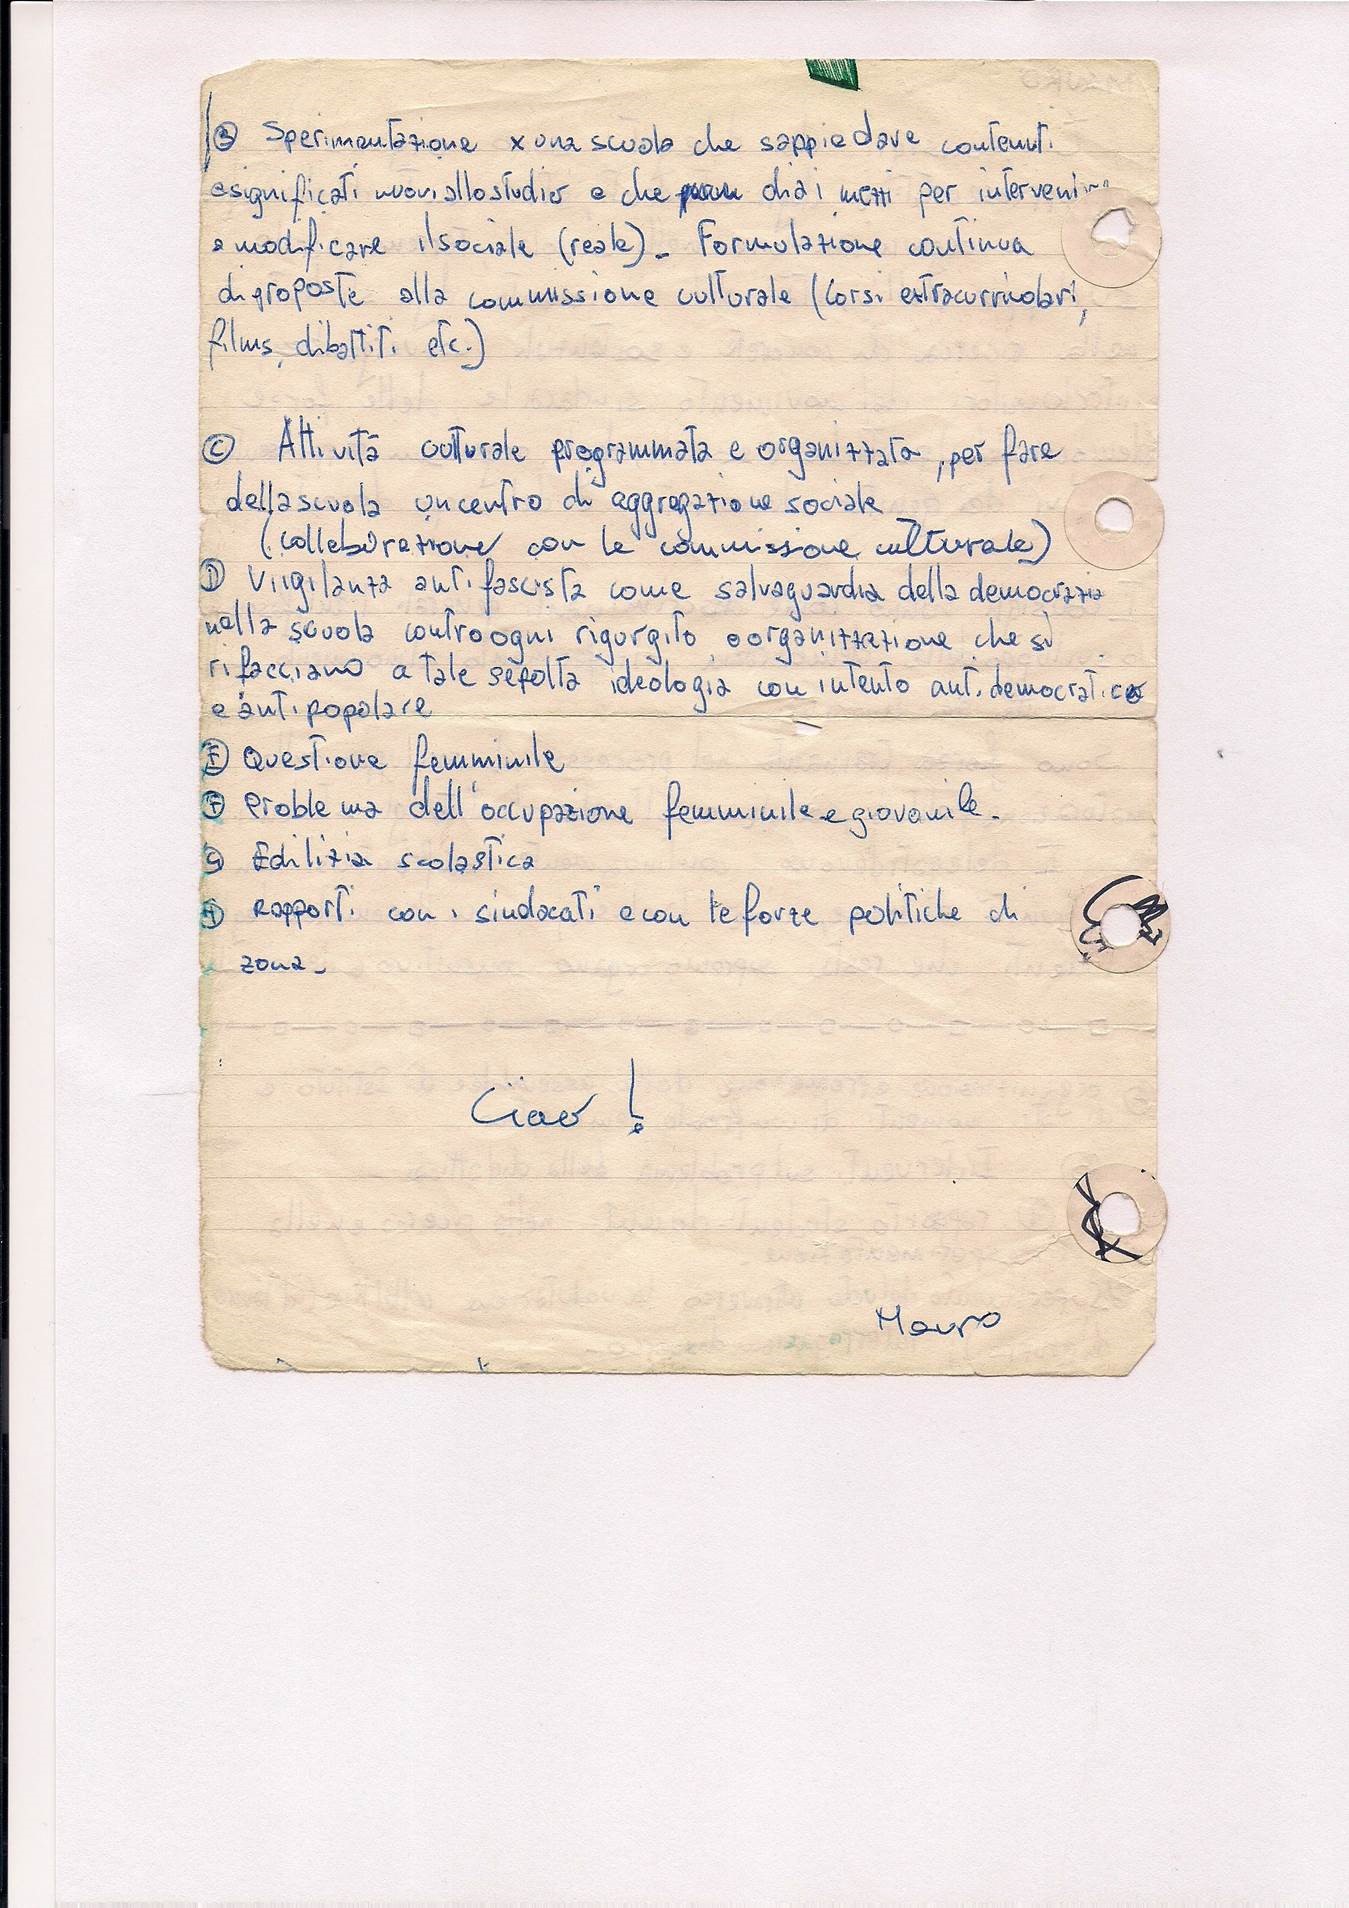 Ⓑ Sperimentazione x una scuola che sappia dare contenuti
e significati nuovi allo studio e che dia i mezzi per intervenire
e modificare il sociale (reale). Formulazione continua
di proposte alla commissione culturale (corsi extracurricolari,
films, dibattiti etc.)
Ⓒ Attività culturale programmata e organizzata, per fare
della scuola un centro di aggregazione sociale
(collaborazione con la commissione culturale)
Ⓓ Viigilanza antifascista come salvaguardia della democrazia
nella scuola contro ogni rigurgito o organizzazione che si
rifacciano a tale sepolta ideologia con intento antidemocratico
e antipopolare
Ⓔ Questione femminile
Ⓕ Problema dell'occupazione femminile e giovanile.
Ⓖ Edilizia scolastica
Ⓗ Rapporti con i sindacati e con le forze politiche di
zona.
Ciao!
Mauro